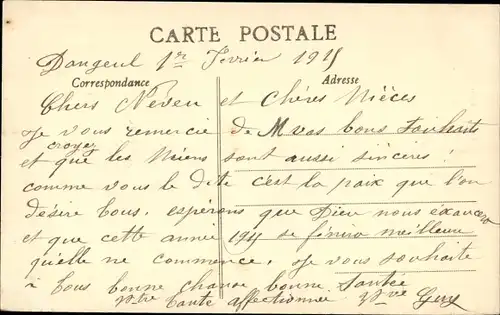 CARTE POSTALE
Dangeul 1er Fevrier 1915
Correspondance
Adresse
Chers Neveu et Chéres Nièces
Je vous remercie de vos bons souhaits
croyez
et que les miens sont aussi sincères !
comme vous le dite c'est la paix que l'on
désire tous. espérons que Dieu nous éxaucera
et que cette année 1915 se finira meilleur
qu'elle ne commence. Je vous souhaite
à tous bonne chance bonne Santée
Votre tante affectionnée Vve Guy